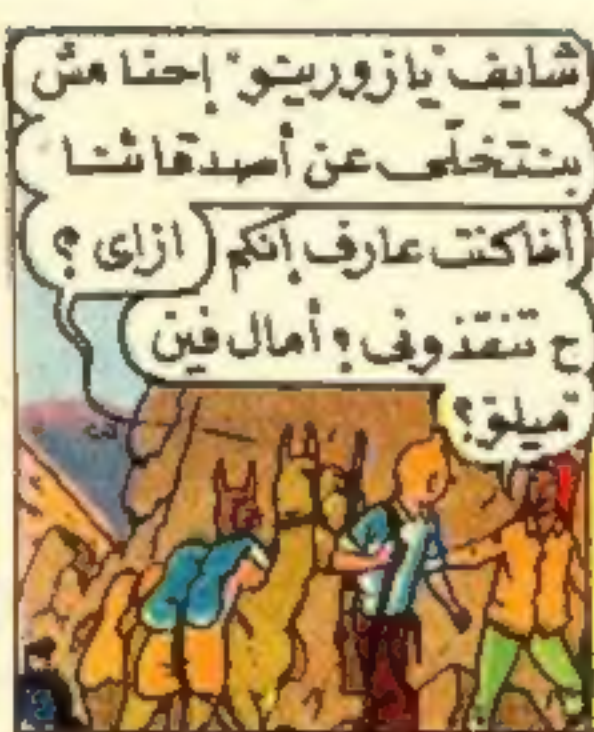 شايف "يا زورينو" إحنا مش
بنتخلّى عن أصدقائنا
أنا كنت عارف إنكم
ح تنقذوني؟ أمال فين
"ميلو"؟
ازاى؟